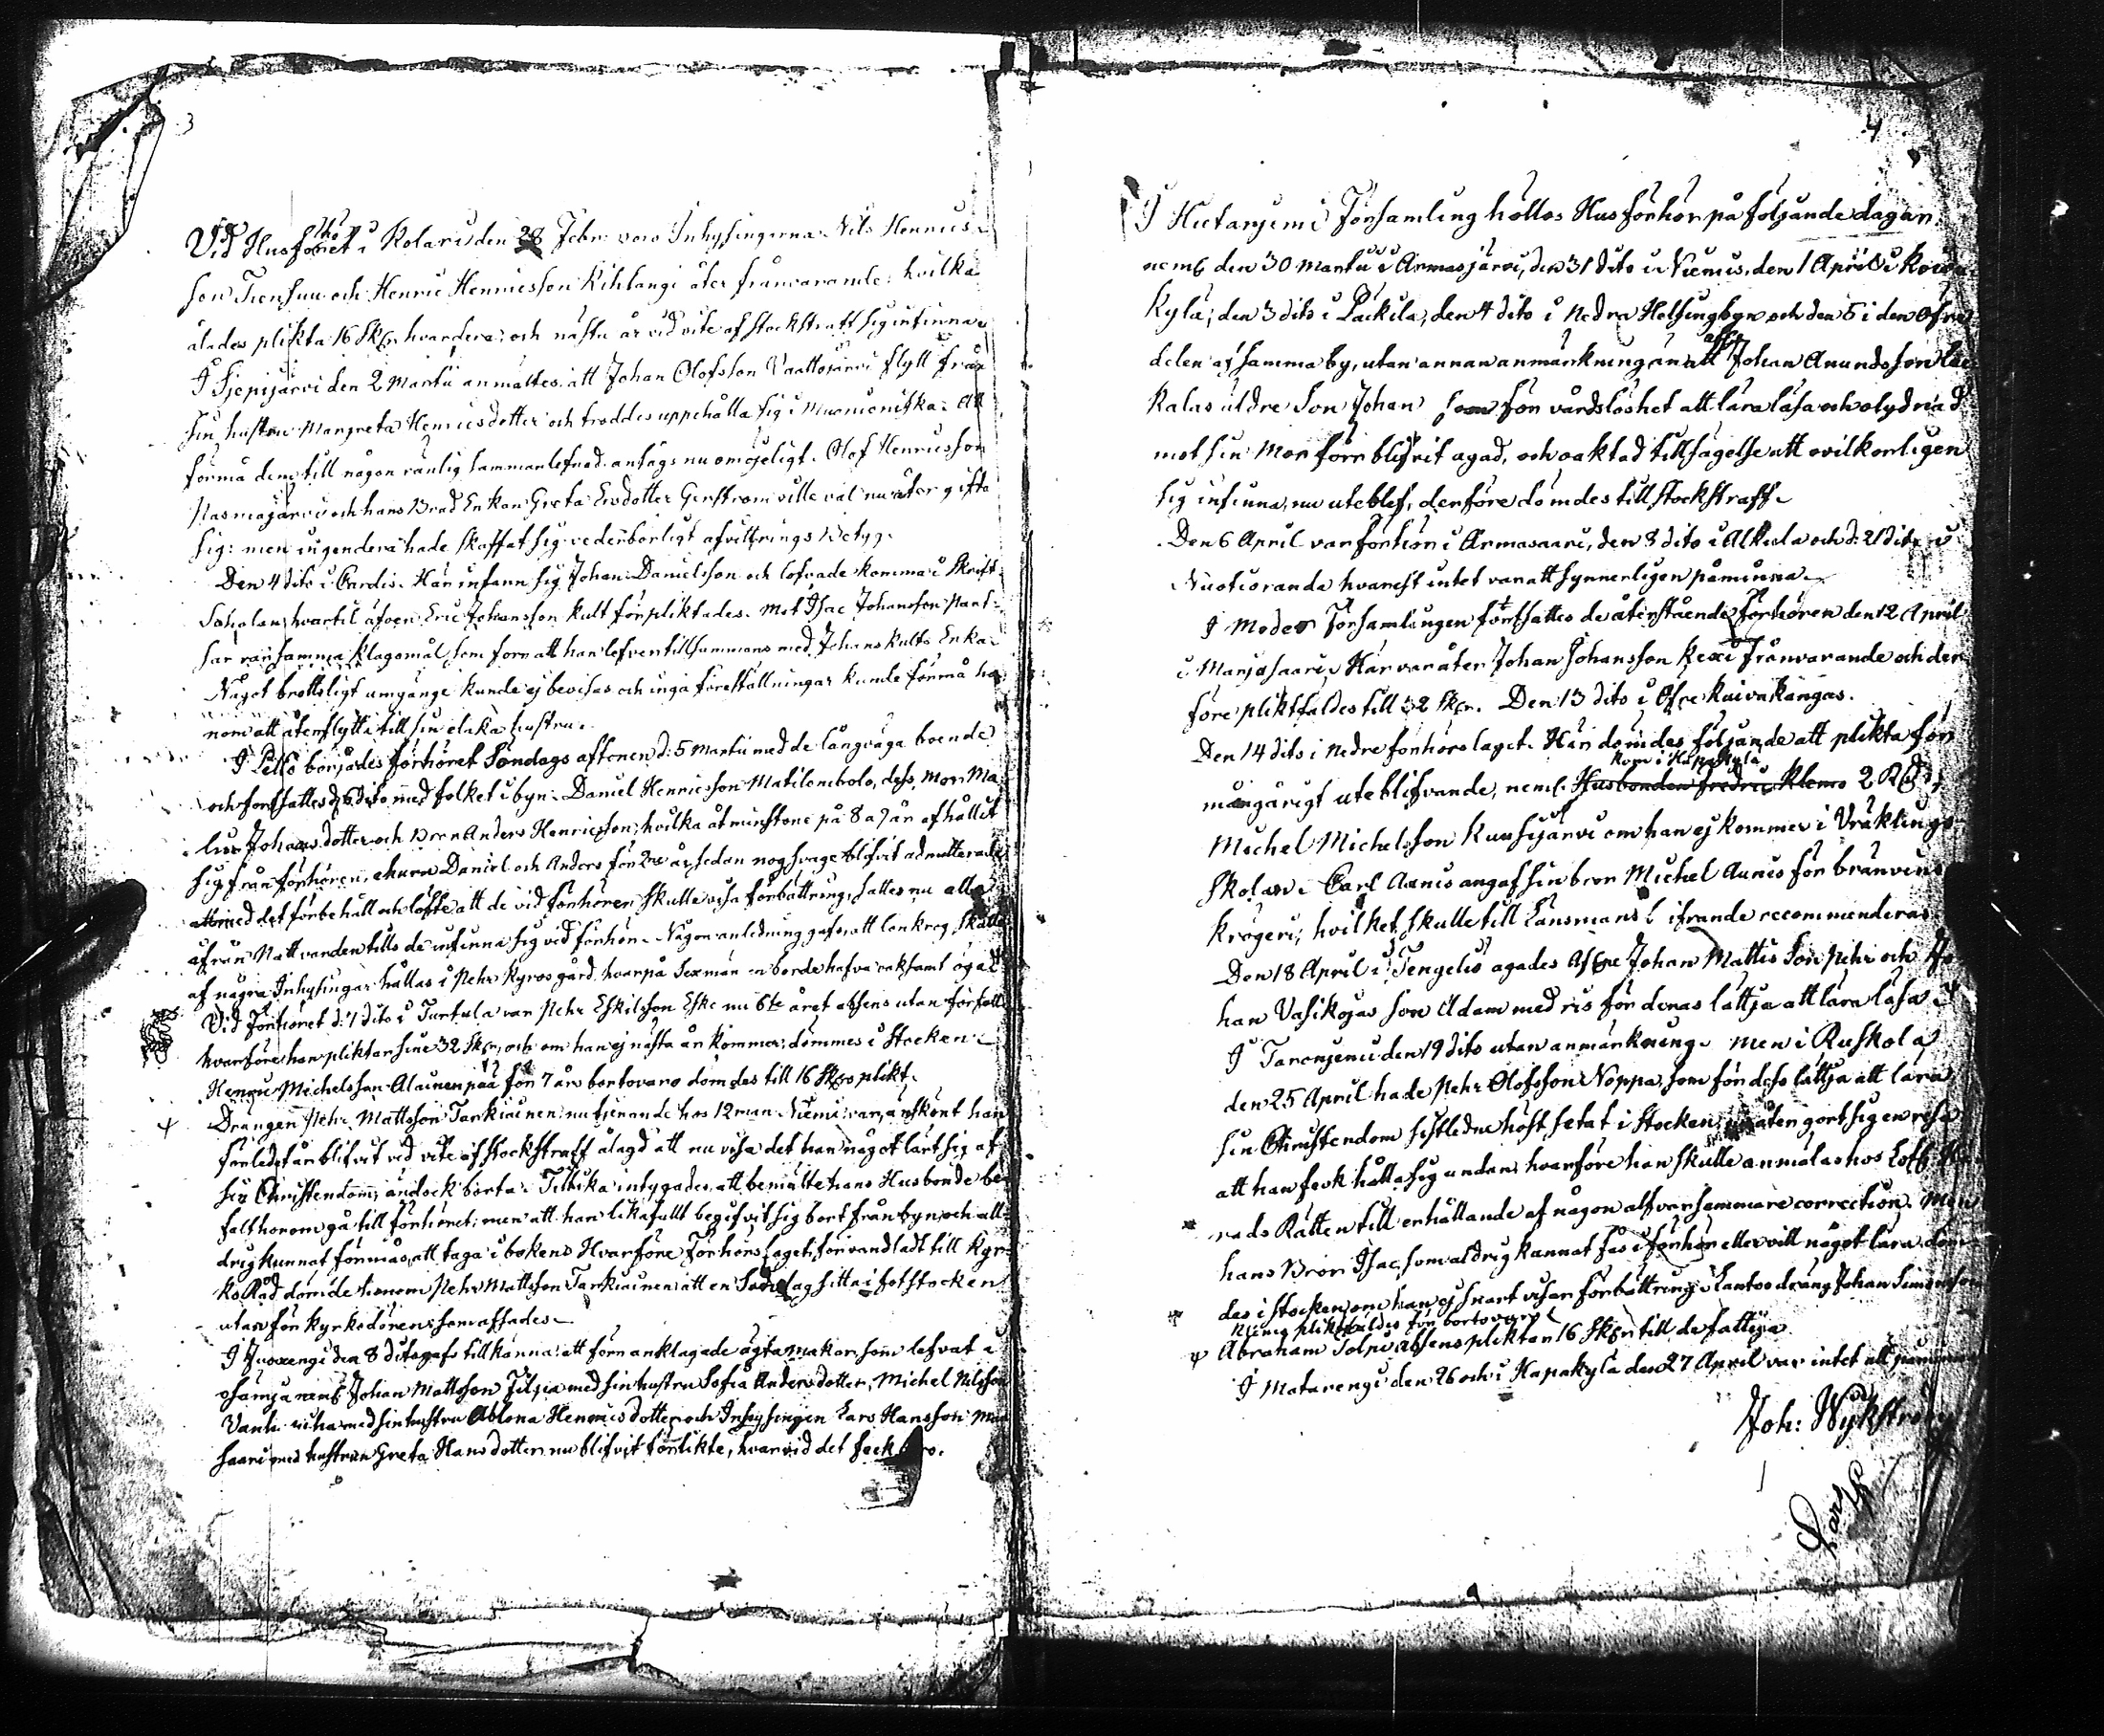 3
Vid Husförhöret i Kolari den 28 Febr. voro Inhysingarna Nils Henrics-
son Tiensuu och Henric Henricsson Kihlangi åter frånvarande: hvilka
ålades plikta 16 Sk:r hvardera; och nästa år vid vite af stockstraff sig infinna.
I Sjepijärvi den 2 Martii anmältes, att Johan Olofsson Vaattojärvi flytt från
sin hustru Margreta Henricsdotter och troddes uppehålla sig i Muonioniska. Att
förmå dem till någon vänlig sammanlefnad ansågs nu omöjeligt. Olof Henricsson
Nasmajärvi och hans Brud Enkan Greta Ersdotter Gerström ville väl nu åter gifta
sig: men ingendera hade skaffat sig vederbörligt afvittrings Betyg.
Den 4 dito i Cardis. Här infann sig Johan Danielsson och lofvade komma i Skrift-
Scholan, hvartil äfven Eric Johansson Kult förpliktades. Mot Isac Johansson
var samma klagomål som förr att han lefver tillsammans med Johans Kults Enka.
Något brottsligt umgänge kunde ej bevisas och inga föreställningar kunde förmå ho-
nom att återflytta till sin elaka hustru.
I Pello börjades förhöret Söndags aftonen d: 5 Martii med de långväga boende
och fortsattes d. 6 dito med folket i byn. Daniel Henricsson Matilombolo, dess Mor Ma-
lin Johansdotter och Bror Anders Henricsson, hvilka åtminstone på 8 a 9 år afhållit
sig från förhören, ehuru Daniel och Anders för 2ne år sedan nog svage blifvit admitterade
med det förbehåll och löfte att de vid förhören skulle visa förbättring, sattes nu alla
ifrån Nattvarden tills de infinna sig vid förhör. Någon anledning gafs, att lönkrog skulle
af några Inhysingar hållas i Pehr Kyrös gård hvarpå Sexmän borde hafva vaksamt öga.
Vid Förhöret d: 7 dito i Turtula var Pehr Eskilsson Eske nu 6te året absens utan förfall
hvarföre han pliktar sine 32 Sk:r, och om han ej nästa år kommer, dömmes i Stocken.
Henric Michelsson Alainenpää för 7 års bortovaro dömdes till 16 Sk:rs plikt.
Drängen Pehr Mattsson Tarkiainen nu tjenande hos 12man Niemi var, anskönt han
förledet år blifvit vid vite af stockstraff ålagd att nu visa det han något lärt sig af
sin Christendom, ändock borta. Tillika intygades, att bemälte hans Husbonde be-
falt honom gå till förhöret; men att han likafullt begifvit sig bort från byn, och ald-
drig kunnat förmås, att taga i boken. Hvarföre Förhörs laget, förvandladt till Kyr-
koRåd dömde honom Pehr Mattsson Tarkiainen att en Söndag sitta i fotstocken
utanför kyrkodören som affades.
I Juoxengi den 8 dito gafs tillkänna att förr anklagade ägta makar som lefvat i
osämja neml. Johan Mattsson Filpa med sin hustru Sofia Andersdotter, Michel Nilsson
Vanha med sin hustru Ablona Henricsdotter och Inhysingen Lars Hansson
saari med hustrun Greta Hansdotter, nu blifvit förlikte, hvarvid det feck bero.
4
I Hietaniemi Församling höllos Husförhör på följande dagar
neml. den 30 Martii i Armasjärvi, den 31 dito i Niemis, den 1 April i Koivu-
kylä, den 3 dito i Päckilä, den 4 dito i Nedra Helsingbyn och den 5 i den öfre
delen af samma by, utan annan anmärkning än att Johan Anundsson Lac-
kalas äldre Son Johan som för vårdslöshet att lära läsa och olydnad
mot sin Mor förr blifvit agad, och oaktad tillsägelse att ovilkorligen
sig infinna, nu uteblef, derföre dömdes till stockstraff.
Den 6 April var förhör i Armasaari, den 8 dito i Alkula och d: 21 dito i
Nuotioranda hvarest intet var att synnerligen påminna.
I Moder Församlingen fortsattes de återstående Förhören den 12 April
i Marjosaari. Här var åter Johan Johansson Kexi frånvarande och der-
före pliktfäldes till 32 Sk:r. Den 13 dito i Öfre Kuivakangas.
Den 14 dito i Nedre förhörs laget. Här dömdes följande att plikta för
kom i Hapakylä
mångårigt uteblifvande, neml. Husbonden Fredric Klemo 2 R:d;
Michel Michelsson Kuusijärvi om han ej kommer i Vräklings
Skolan. Carl Aunis angaf sin bror Michel Aunis för bränvins
krögeri; hvilket skulle till Länsmans ifrande recommenderas
Den 18 April i Tengeliö agades Afl:ne Johan Mattis Son Pehr och Jo-
han Vasikojas son Adam med ris för deras lättja att lära läsa
I Taronjemi den 19 dito utan anmärkning. men i Ruskola
den 25 April hade Pehr Olofsson Noppa, som för dess lättja att lära
sin Christendom sistledne höst setat i Stocken, nu åter gjort sig en resa
att han feck hålla sig undan, hvarföre han skulle anmälas hos Lofl. Hä-
rads Rätten till erhållande af någon alfvarsammare correction. Men
hans Bror Isac, som aldrig kunnat fås i förhör eller vill något lära döm-
des i stocken om han ej snart visar förbättring. Kantos dräng Johan Simonsson
Niemis pliktfäldes för bortovaro
Abraham Tolpi absens pliktar 16 Sk:r till de fattiga.
I Matarengi den 26 och i Hapakylä den 27 April var intet att påminna
Joh: Wykström